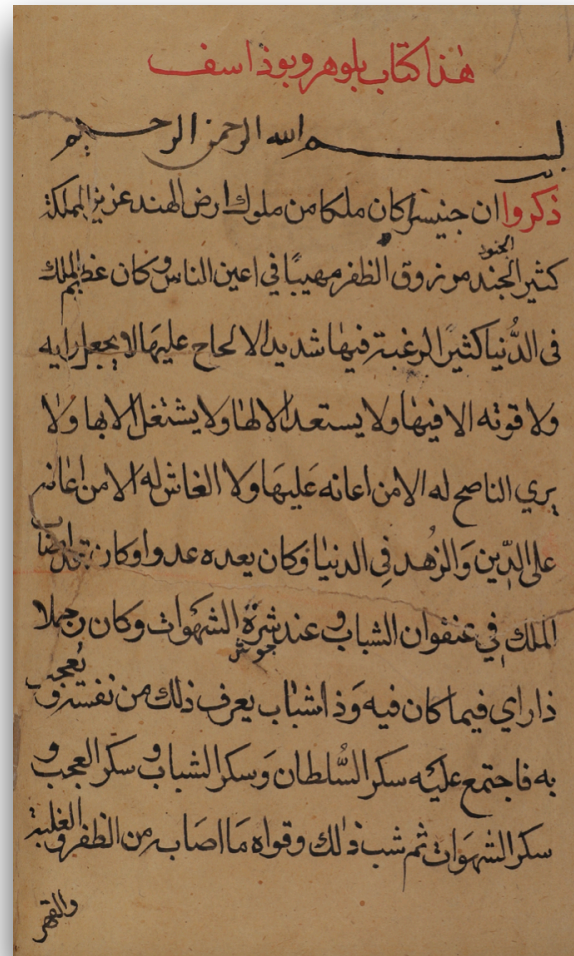 هذا كتاب بلوهر وبوذاسف
بسم الله الرحمن الرحيم
ذكروا ان جنيسر كان ملكا من ملوك ارض الهند عزيز المملكة
كثير الجند الجنود مرزوق الظفر مهيبًا في اعين الناس وكان عظيم الملك
في الدُّنيا كثيرًا لرغبته فيها شديد الالحاح عليها لا يجعل رايه
ولا قوته الا فيها ولا يستعد الا لها ولا يشتغل الا بها ولا
يري الناصح له الا من اعانه عَليها ولا الغاش له الا من اعانه
على الدِّين وَالزُهد فِي الدنيا وكان يعده عدوا وكان
الملك فِي عنفوان الشباب وعند شرة الشهوات وكان رجلا
ذا راي فيما كان فيه وَذا شباب يعرف ذلك من نفسه ويعجب
به فاجتمع عليه سكر السُّلطان وَسكر الشباب وسكر العجب و
سكر الشهوات ثم شب ذلك وقواه مَا اصاب من الظفر والغلبة
والقهر